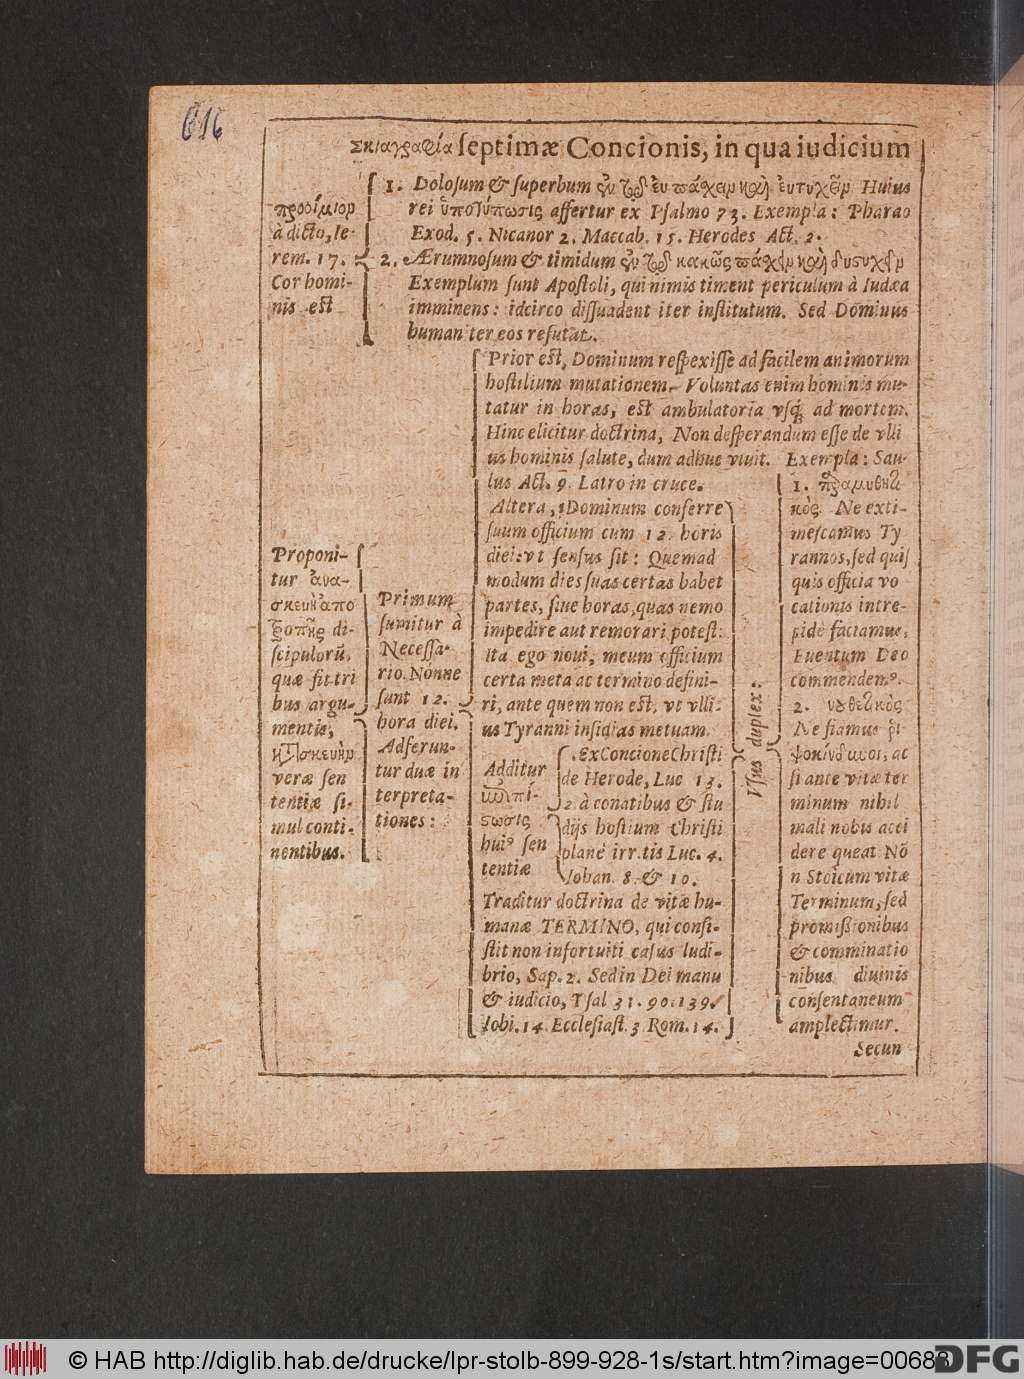 616
Σκιαγραφία septimæ Concionis, in qua iudicium
προοίμιον
à dicto, Ie-
rem. 17.
Cor homi-
nis est
1. Dolosum & superbum ἐν τῷ εὖ πάχειν καὶ εὐτυχεῖν Huius
rei ὑποτύπωσις affertur ex Psalmo 73. Exempla: Pharao
Exod. 5. Nicanor 2. Maccab. 15. Herodes Act. 2.
2. Ærumnosum & timidum ἐν τῷ κακῶς πάχειν καὶ δυστυχεῖν
Exemplum sunt Apostoli, qui nimis timent periculum à Iudæa
imminens: idcirco dissuadent iter institutum. Sed Dominus
humaniter eos refutat.
Proponi-
tur ἀνα-
σκευὴ ἀπο
τροπῆς di-
scipulorū,
quæ fit tri
bus argu-
mentis,
κατασκευὴν
veræ sen
tentiæ si-
mul conti-
nentibus.
Primum
sumitur à
Necessa-
rio. Nonne
sunt 12.
hora diei.
Adferun-
tur duæ in
terpreta-
tiones:
Prior est, Dominum respexisse ad facilem animorum
hostilium mutationem. Voluntas enim hominis mu-
tatur in horas, est ambulatoria vsq́ ad mortem.
Hinc elicitur doctrina, Non desperandum esse de vlli
us hominis salute, dum adhuc viuit. Exempla: Sau-
lus Act. 9. Latro in cruce.
Altera, Dominum conferre
suum officium cum 12. horis
diei: vt sensus sit: Quemad
modum dies suas certas habet
partes, siue horas, quas nemo
impedire aut remorari potest:
Ita ego noui, meum officium
certa meta ac termino defini-
ri, ante quem non est, vt vlli-
us Tyranni insidias metuam.
Additur
ἐπί-
σωσις
hui⁹ sen
tentiæ
. Ex Concione Christi
de Herode, Luc 13.
2. à conatibus & stu
dijs hostium Christi
planè irr.tis Luc. 4.
Iohan. 8. & 10.
Traditur doctrina de vitæ hu-
manæ TERMINO, qui consi-
stit non infortuiti casus ludi-
brio, Sap. 2. Sed in Dei manu
& iudicio, Psal 31. 90. 139.
Iobi. 14. Ecclesiast. 3. Rom. 14.
Vsus duplex:
1. παραμυθητι
κὸς. Ne exti-
mescamus Ty
rannos, sed quis
quis officia vo
cationis intre-
pidè faciamus,
Euentum Deo
commendem⁹.
2. νουθετικὸς
Ne fiamus ῥι-
ψοκίνδυνοι, ac
si ante vitæ ter
minum nihil
mali nobis acci
dere queat Nō
n Stoicum vitæ
Terminum, sed
promissionibus
& comminatio
nibus diuinis
consentaneum
amplectimur.
Secun
© HAB http://diglib.hab.de/drucke/lpr-stolb-899-928-1s/start.htm?image=00688
DFG